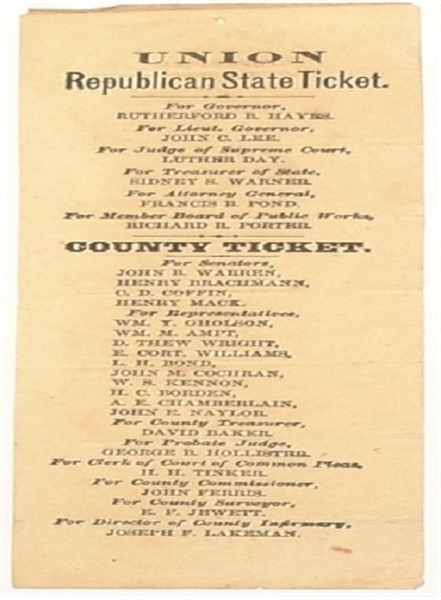 UNION
Republican State Ticket.
For Governor,
RUTHERFORD B. HAYES.
For Lieut. Governor,
JOHN C. LEE.
For Judge of Supreme Court,
LUTHER DAY.
For Treasurer of State,
SIDNEY S. WARNER.
For Attorney General,
FRANCIS B. POND.
For Member Board of Public Works,
RICHARD R. PORTER.
COUNTY TICKET.
For Senators,
JOHN B. WARREN,
HENRY BRACHMANN,
C. D. COFFIN,
HENRY MACK.
For Representatives,
WM. Y. GHOLSON,
WM. M. AMPT,
D. THEW WRIGHT,
E. CORT. WILLIAMS,
L. H. BOND,
JOHN M. COCHRAN,
W. S. KENNON,
H. C. BORDEN,
A. E. CHAMBERLAIN,
JOHN E. NAYLOR.
For County Treasurer,
DAVID BAKER.
For Probate Judge,
GEORGE B. HOLLISTER.
For Clerk of Court of Common Pleas,
H. H. TINKER.
For County Commissioner,
JOHN FERRIS.
For County Surveyor,
E. F. JEWETT.
For Director of County Infirmary,
JOSEPH F. LAKEMAN.